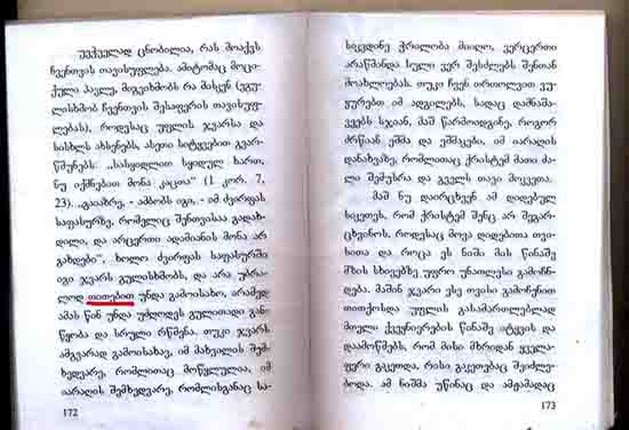 უეჭველად ცნობილია, რას მოაქვს
ჩვენთვის თავისუფლება. ამიტომაც მოცი-
ქული პავლე, მიგვიხმობს რა მისკენ (ვგუ-
ლისხმობ ჩვენთვის შესაფერის თავისუფ-
ლებას), როდესაც უფლის ჯვარსა და
სისხლს ახსენებს, ასეთი სიტყვებით გვარ-
წმუნებს: „სასყიდლით სყიდულ ხართ,
ნუ იქმნებით მონა კაცთა“ (1 კორ. 7,
23). „გაიაზრე, - ამბობს იგი, - იმ ძვირფას
საფასურზე, რომელიც შენთვისაა გადახ-
დილი, და არცერთი ადამიანის მონა არ
გახდები“, ხოლო ძვირფას საფასურში
იგი ჯვარს გულისხმობს, და არა უბრა-
ლოდ თითებით უნდა გამოისახო, არამედ
ამას წინ უნდა უძღოდეს გულითადი გან-
წყობა და სრული რწმენა. თუკი ჯვარს
ამგვარად გამოისახავ, იმ მახვილის შემ-
ხედვარე, რომლითაც მოწყლულია, იმ
იარაღის შემხედვარე, რომლისგანაც სა-
172
სიკვდინე ჭრილობა მიიღო, ვერცერთი
არაწმინდა სული ვერ შესძლებს შენთან
მოახლოებას. თუკი ჩვენ თრთოლვით ვუ-
ყურებთ იმ ადგილებს, სადაც დამნაშა-
ვეებს სჯიან, მაშ წარმოიდგინე, როგორ
ძრწიან ეშმა და ეშმაკები, იმ იარაღის
დანახვაზე, რომლითაც ქრისტემ მათი ძა-
ლი შემუსრა და გველს თავი მოკვეთა.
მაშ ნუ დაირცხვენ ამ დიდებულ
სიკეთეს, რომ ქრისტემ შენც არ შეგარ-
ცხვინოს, როდესაც მოვა დიდებითა თვი-
სითა და როცა ეს ნიში მის წინაშე
მზის სხივებზე უფრო უნათლესი გამოჩნ-
დება. მაშინ ჯვარი ესე თვისი გამოჩენით
თითქოსდა უფლის გასამართლებლად
მთელი ქვეყნიერების წინაშე იტყვის და
დაამოწმებს, რომ მისი მხრიდან ყველა-
ფერი გაკეთდა, რისი გაკეთებაც შეიძლე-
ბოდა. ამ ნიშმა უწინაც და ამჟამადაც
173